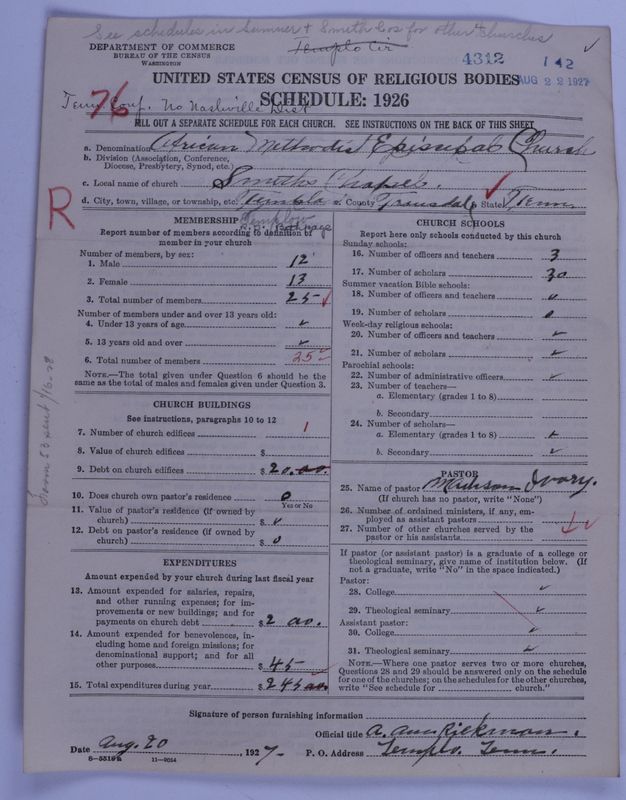 See schedules in Sumner & Smith Cos for other churches
DEPARTMENT OF COMMERCE
BUREAU OF THE CENSUS
WASHINGTON
4312
142
AUG 22 1927
UNITED STATES CENSUS OF RELIGIOUS BODIES
SCHEDULE: 1926
76
Tenn Conf. No Nashville Dist
FILL OUT A SEPARATE SCHEDULE FOR EACH CHURCH. SEE INSTRUCTIONS ON THE BACK OF THIS SHEET
a. Denomination African Methodist Episcopal Church
b. Division (Association, Conference, Diocese, Presbytery, Synod, etc.)
c. Local name of church Smiths Chapell.
d. City, town, village, or township, etc. e. County State Tenn.
Templow
R
MEMBERSHIP
Report number of members according to definition of member in your church
Number of members, by sex:
1. Male 12
2. Female 13
3. Total number of members 25
Number of members under and over 13 years old:
4. Under 13 years of age
5. 13 years old and over
6. Total number of members 25
NOTE.—The total given under Question 6 should be the same as the total of males and females given under Question 3.
CHURCH BUILDINGS
See instructions, paragraphs 10 to 12
7. Number of church edifices 1
8. Value of church edifices $
9. Debt on church edifices $ 20.00.
10. Does church own pastor's residence 0
Yes or No
11. Value of pastor's residence (if owned by church) $
12. Debt on pastor's residence (if owned by church) $
EXPENDITURES
Amount expended by your church during last fiscal year
13. Amount expended for salaries, repairs, and other running expenses; for improvements or new buildings; and for payments on church debt $ 2 00.
14. Amount expended for benevolences, including home and foreign missions; for denominational support; and for all other purposes $ 45
15. Total expenditures during year $ 245
CHURCH SCHOOLS
Report here only schools conducted by this church
Sunday schools:
16. Number of officers and teachers 3
17. Number of scholars 30
Summer vacation Bible schools:
18. Number of officers and teachers
19. Number of scholars
Week-day religious schools:
20. Number of officers and teachers
21. Number of scholars
Parochial schools:
22. Number of administrative officers
23. Number of teachers—
a. Elementary (grades 1 to 8)
b. Secondary
24. Number of scholars—
a. Elementary (grades 1 to 8)
b. Secondary
PASTOR
25. Name of pastor Madison Ivory.
(If church has no pastor, write "None")
26. Number of ordained ministers, if any, employed as assistant pastors
27. Number of other churches served by the pastor or his assistants
If pastor (or assistant pastor) is a graduate of a college or theological seminary, give name of institution below. (If not a graduate, write "No" in the space indicated.)
Pastor:
28. College
29. Theological seminary
Assistant pastor:
30. College
31. Theological seminary
NOTE.—Where one pastor serves two or more churches, Questions 28 and 29 should be answered only on the schedule for one of the churches; on the schedules for the other churches, write "See schedule for church."
Signature of person furnishing information
Official title
Date Aug. 20, 1927. P. O. Address Templow. Tenn.
8-5519a 11-9054